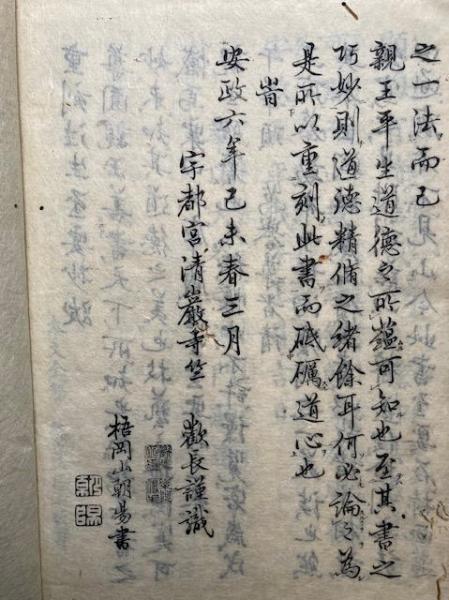 之一法而已
親王平生道德之所蘊可知也至其書之
巧妙則道德精脩之緒餘耳何必論之為
是所以重刻此書而砥礪道心也
旹
安政六年己未春三月
宇都宮清巖寺竺 歡長謹識
梧岡山朝陽書